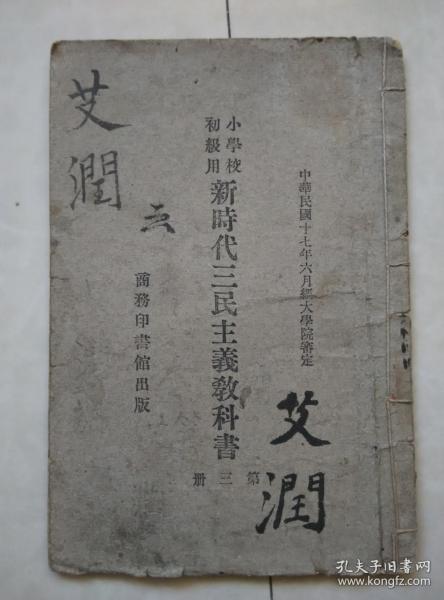 中華民國十七年六月經大學院審定
小學校
初級用
新時代三民主義教科書
第三册
商務印書館出版
艾潤
艾潤
孔夫子旧书网
www.kongfz.com